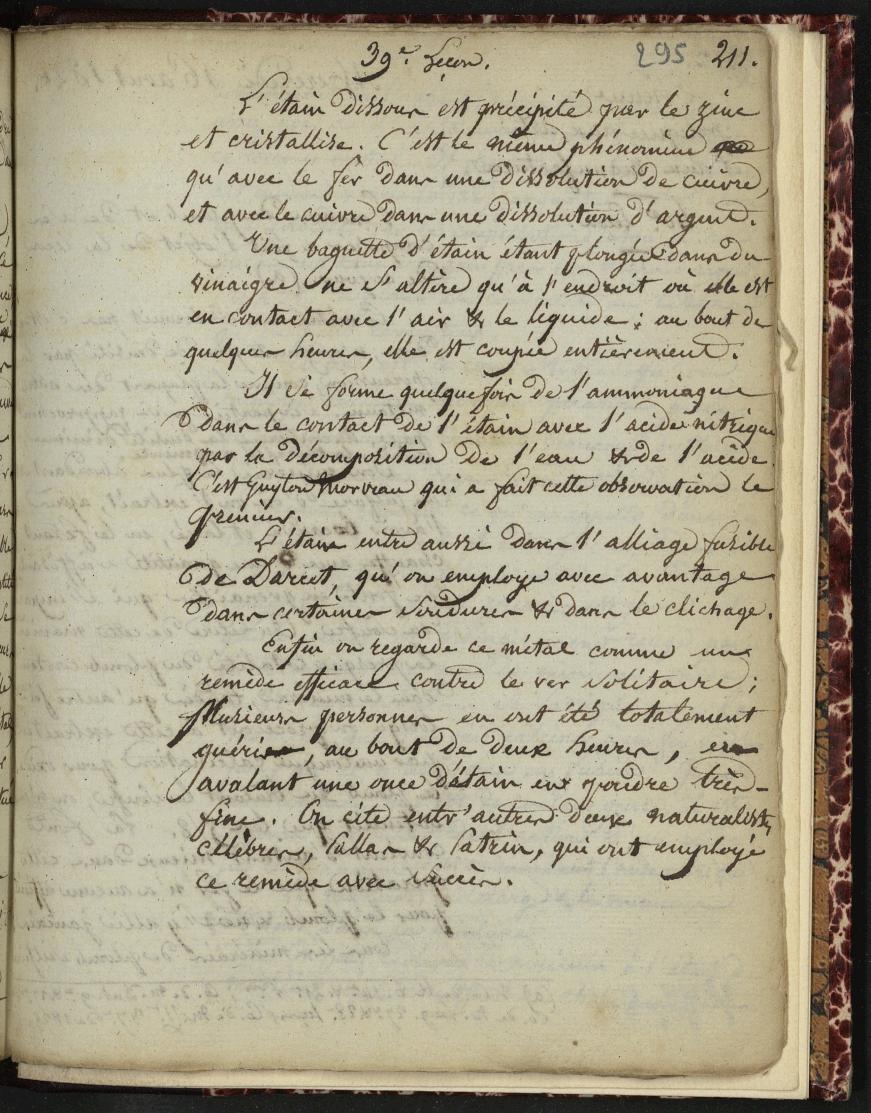 39e Leçon. 295 211.
L'étain dissous est précipité par le zinc
et cristallise. C'est le même phénomène
qu'avec le fer dans une dissolution de cuivre,
et avec le cuivre dans une dissolution d'argent.
Une baguette d'étain étant plongée dans du
vinaigre ne s'altère qu'à l'endroit où elle est
en contact avec l'air & le liquide ; au bout de
quelques heures, elle est coupée entièrement.
Il se forme quelquefois de l'ammoniaque
dans le contact de l'étain avec l'acide nitrique
par la décomposition de l'eau & de l'acide.
C'est Guyton Morveau qui a fait cette observation le
premier.
L'étain entre aussi dans l'alliage fusible
de Darcet, qu'on employe avec avantage
dans certaines soudures & dans le clichage.
Enfin on regarde ce métal comme un
remède efficace contre le ver solitaire ;
plusieurs personnes en ont été totalement
guéries, au bout de deux heures, en
avalant une once d'étain en poudre très-
fine. On cite entr'autres deux naturalistes
célèbres, Pallas & Patrin, qui ont employé
ce remède avec succès.